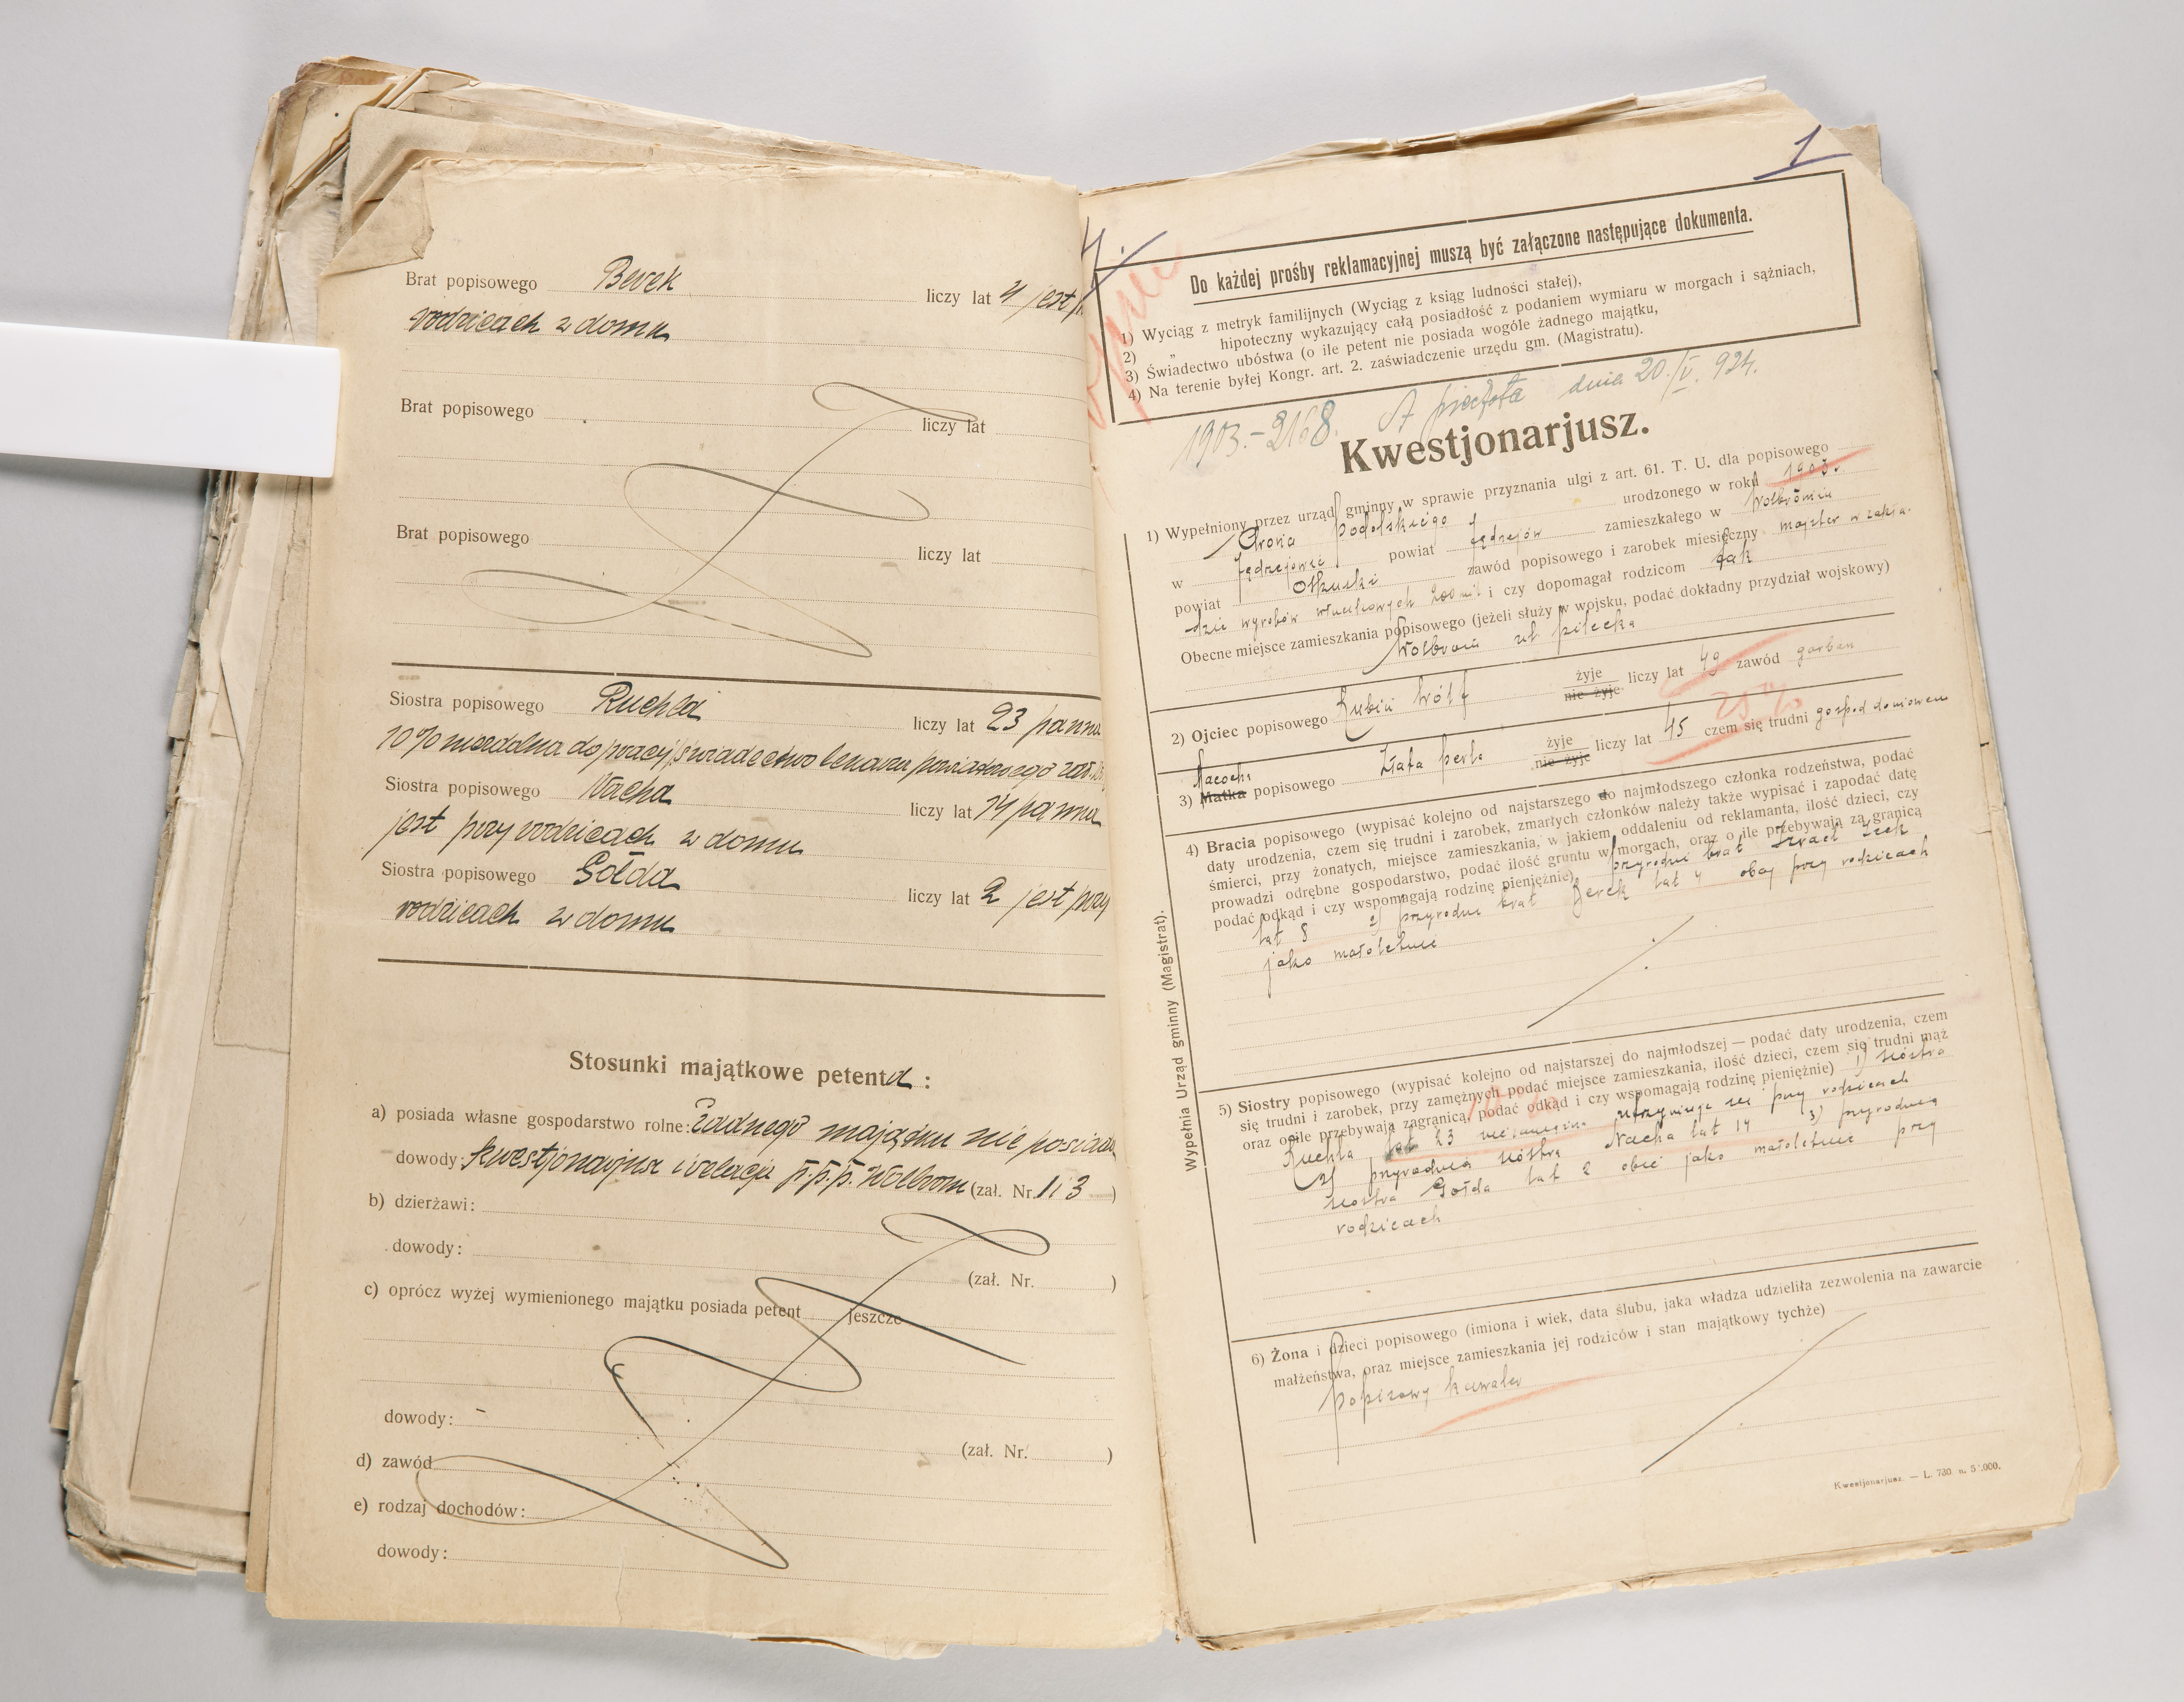 Brat popisowego Berek liczy lat 4 jest
rodzicach w domu
Brat popisowego liczy lat
Brat popisowego liczy lat
Siostra popisowego Ruchla liczy lat 23 panna
10% niezdolna do pracy świadectwo lekarza powiatowego
Siostra popisowego Nacha liczy lat 14 panna
jest przy rodzicach w domu
Siostra popisowego Gołda liczy lat 2 jest przy
rodzicach w domu
Stosunki majątkowe petenta :
a) posiada własne gospodarstwo rolne: żadnego majątku nie posiada
dowody: kwestjonarjusz i relacja p.p.p. Wolbrom (zał. Nr. 1 i 3 )
b) dzierżawi:
dowody:
(zał. Nr. )
c) oprócz wyżej wymienionego majątku posiada petent jeszcze
dowody: -
(zał. Nr. )
d) zawód
e) rodzaj dochodów:
dowody:
1
Do każdej prośby reklamacyjnej muszą być załączone następujące dokumenta.
1) Wyciąg z metryk familijnych (Wyciąg z ksiąg ludności stałej),
2) „ hipoteczny wykazujący całą posiadłość z podaniem wymiaru w morgach i sążniach,
3) Świadectwo ubóstwa (o ile petent nie posiada wogóle żadnego majątku,
4) Na terenie byłej Kongr. art. 2. zaświadczenie urzędu gm. (Magistratu).
1903.-2168. A dnia 20./V. 924.
Kwestjonarjusz.
1) Wypełniony przez urząd gminny w sprawie przyznania ulgi z art. 61. T. U. dla popisowego
Arona Podolskiego urodzonego w roku 1903.
w Jędrzejowie powiat Jędrzejów zamieszkałego w Wolbromiu
powiat Olkuski zawód popisowego i zarobek miesięczny majster w zakła-
dzie wyrobów i czy dopomagał rodzicom tak
Obecne miejsce zamieszkania popisowego (jeżeli służy w wojsku, podać dokładny przydział wojskowy)
Wolbrom ul Pilecka
2) Ojciec popisowego Rubin Wólf żyje nie żyje liczy lat 49 zawód garbarz
25%
Macocha
3) Matka popisowego Złata Perla żyje nie żyje liczy lat 45 czem się trudni gospod domowem
4) Bracia popisowego (wypisać kolejno od najstarszego do najmłodszego członka rodzeństwa, podać
daty urodzenia, czem się trudni i zarobek, zmarłych członków należy także wypisać i zapodać datę
śmierci, przy żonatych, miejsce zamieszkania, w jakiem oddaleniu od reklamanta, ilość dzieci, czy
prowadzi odrębne gospodarstwo, podać ilość gruntu w morgach, oraz o ile przebywają za granicą
podać odkąd i czy wspomagają rodzinę pieniężnie) przyrodni brat Izrael Icek
lat 8 2) przyrodni brat Berek lat 4 obaj przy rodzicach
jako małoletnie
5) Siostry popisowego (wypisać kolejno od najstarszej do najmłodszej — podać daty urodzenia, czem
się trudni i zarobek, przy zamężnych podać miejsce zamieszkania, ilość dzieci, czem się trudni mąż
oraz o ile przebywają zagranicą, podać odkąd i czy wspomagają rodzinę pieniężnie) 1) siostra
Ruchla lat 23 niezamężna utrzymuje się przy rodzicach
2) przyrodnia siostra Nacha lat 14 3) przyrodnia
siostra Gołda lat 2 obie jako małoletnie przy
rodzicach
6) Żona i dzieci popisowego (imiona i wiek, data ślubu, jaka władza udzieliła zezwolenia na zawarcie
małżeństwa, oraz miejsce zamieszkania jej rodziców i stan majątkowy tychże)
popisowy kawaler
Wypełnia Urząd gminny (Magistrat).
Kwestjonarjusz. — L. 730. n. 5'.000.